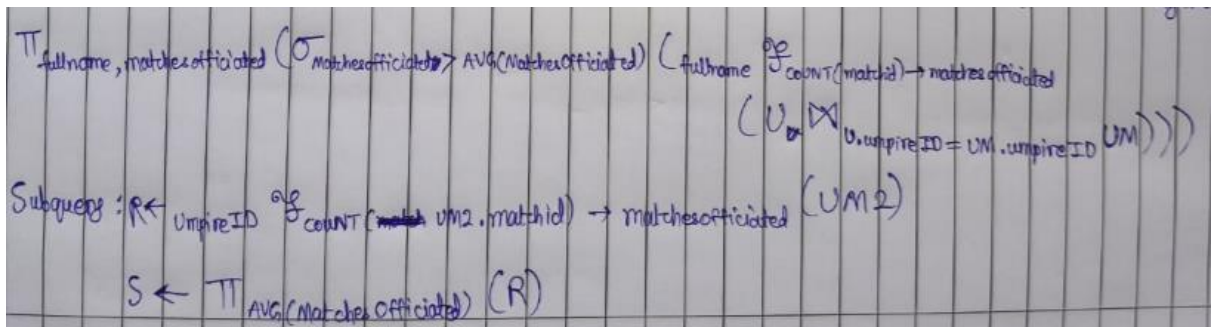 π fullname, matchesofficiated (σ Matchesofficiated > AVG(Matchesofficiated) ( fullname ℱ COUNT(matchid) → matchesofficiated
(U ⋈ U.umpireID = UM.umpireID UM)))
Subquery : R ← UmpireID ℱ COUNT( UM2.matchid) → matchesofficiated (UM2)
S ← π AVG(Matches officiated) (R)